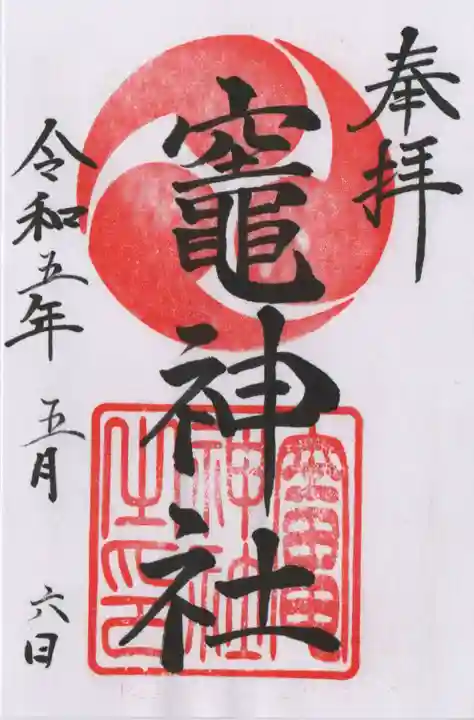 奉拝
竈神社
竈神社之印
令和五年 五月 六日